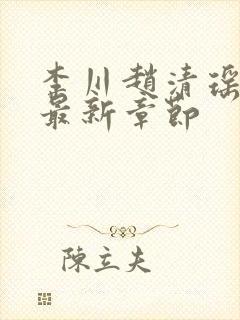 李川趙清瑶
最新章節
陳立夫